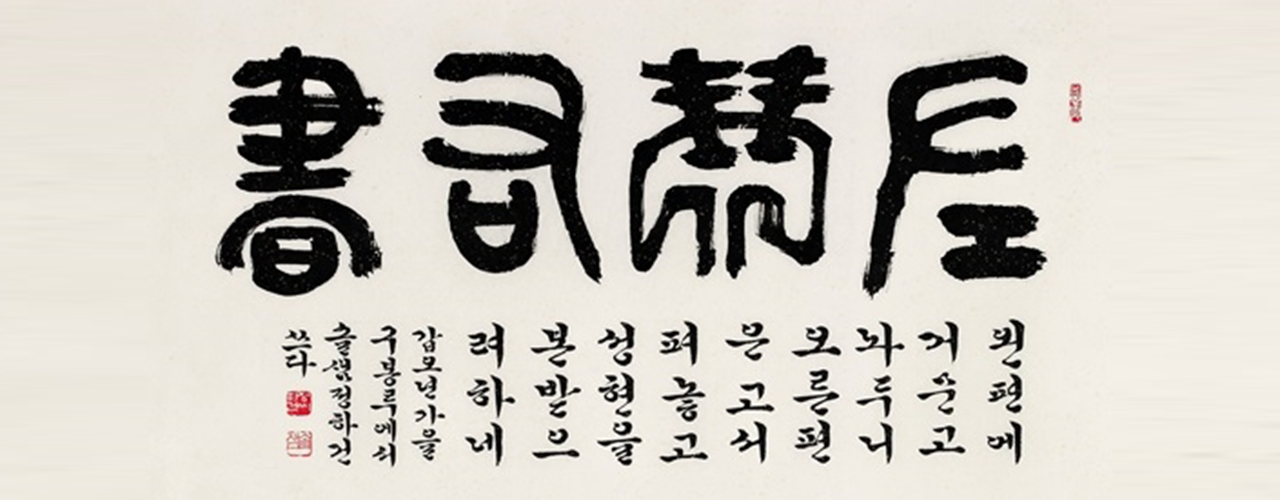 左琴右書
왼편에
거문고
놔두니
오른편
은고서
펴놓고
성현을
본받으
려하네
갑오년가을
구봉루에서
솔샘정하건
쓰다